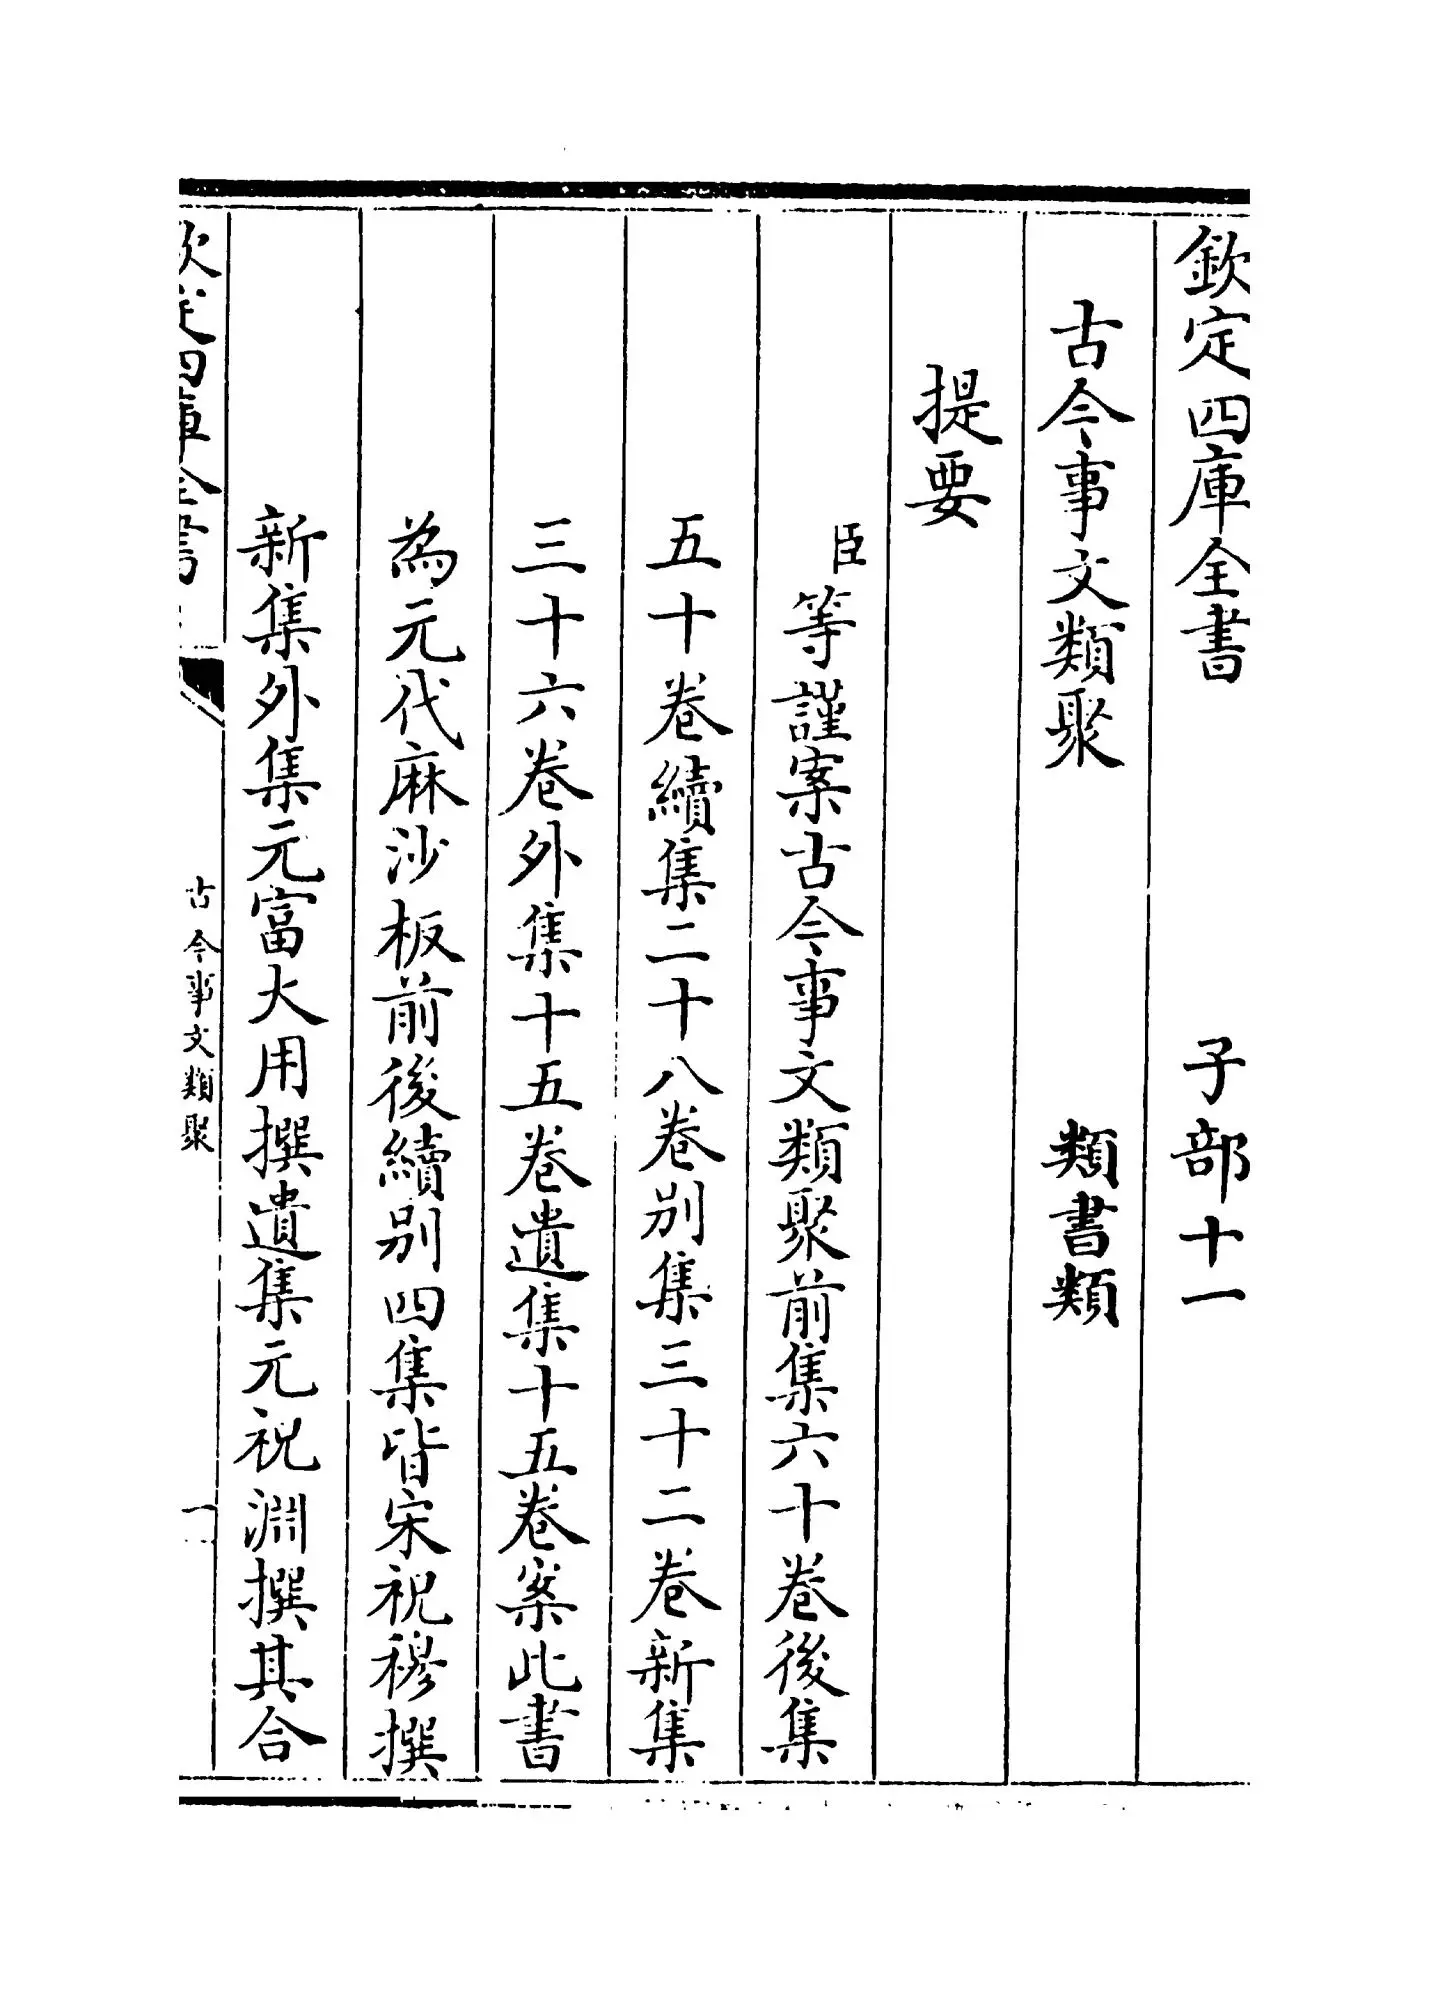 欽定四庫全書 子部十一
古今事文類聚 類書類
提要
臣等謹案古今事文類聚前集六十卷後集
五十卷續集二十八卷别集三十二卷新集
三十六卷外集十五卷遺集十五卷案此書
為元代麻沙板前後續别四集皆宋祝穆撰
新集外集元富大用撰遺集元祝淵撰其合
欽定四庫全書 古今事文類聚 一